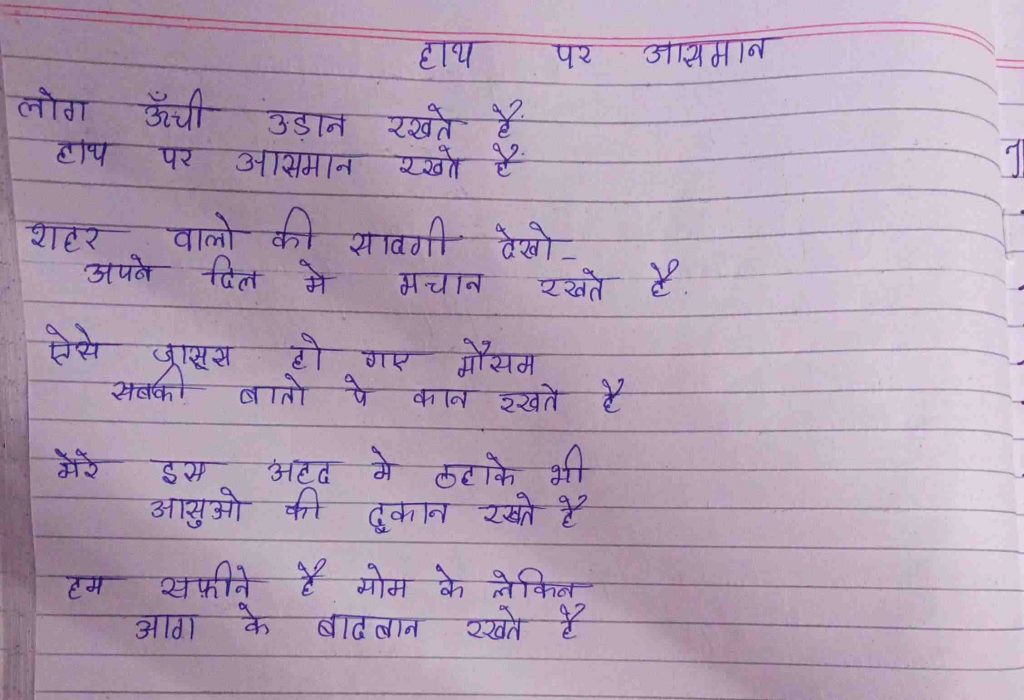 हाथ पर आसमान
लोग ऊँची उड़ान रखते हैं
हाथ पर आसमान रखते हैं
शहर वालो की सादगी देखो-
अपने दिल मे मचान रखते है.
ऐसे जासूस हो गए मौसम
सबकी बातो पे कान रखते है
मेरे इस अहद मे ठहाके भी
आसुओ की दुकान रखते है
हम सफ़ीने है मोम के लेकिन
आग के बादबान रखते है